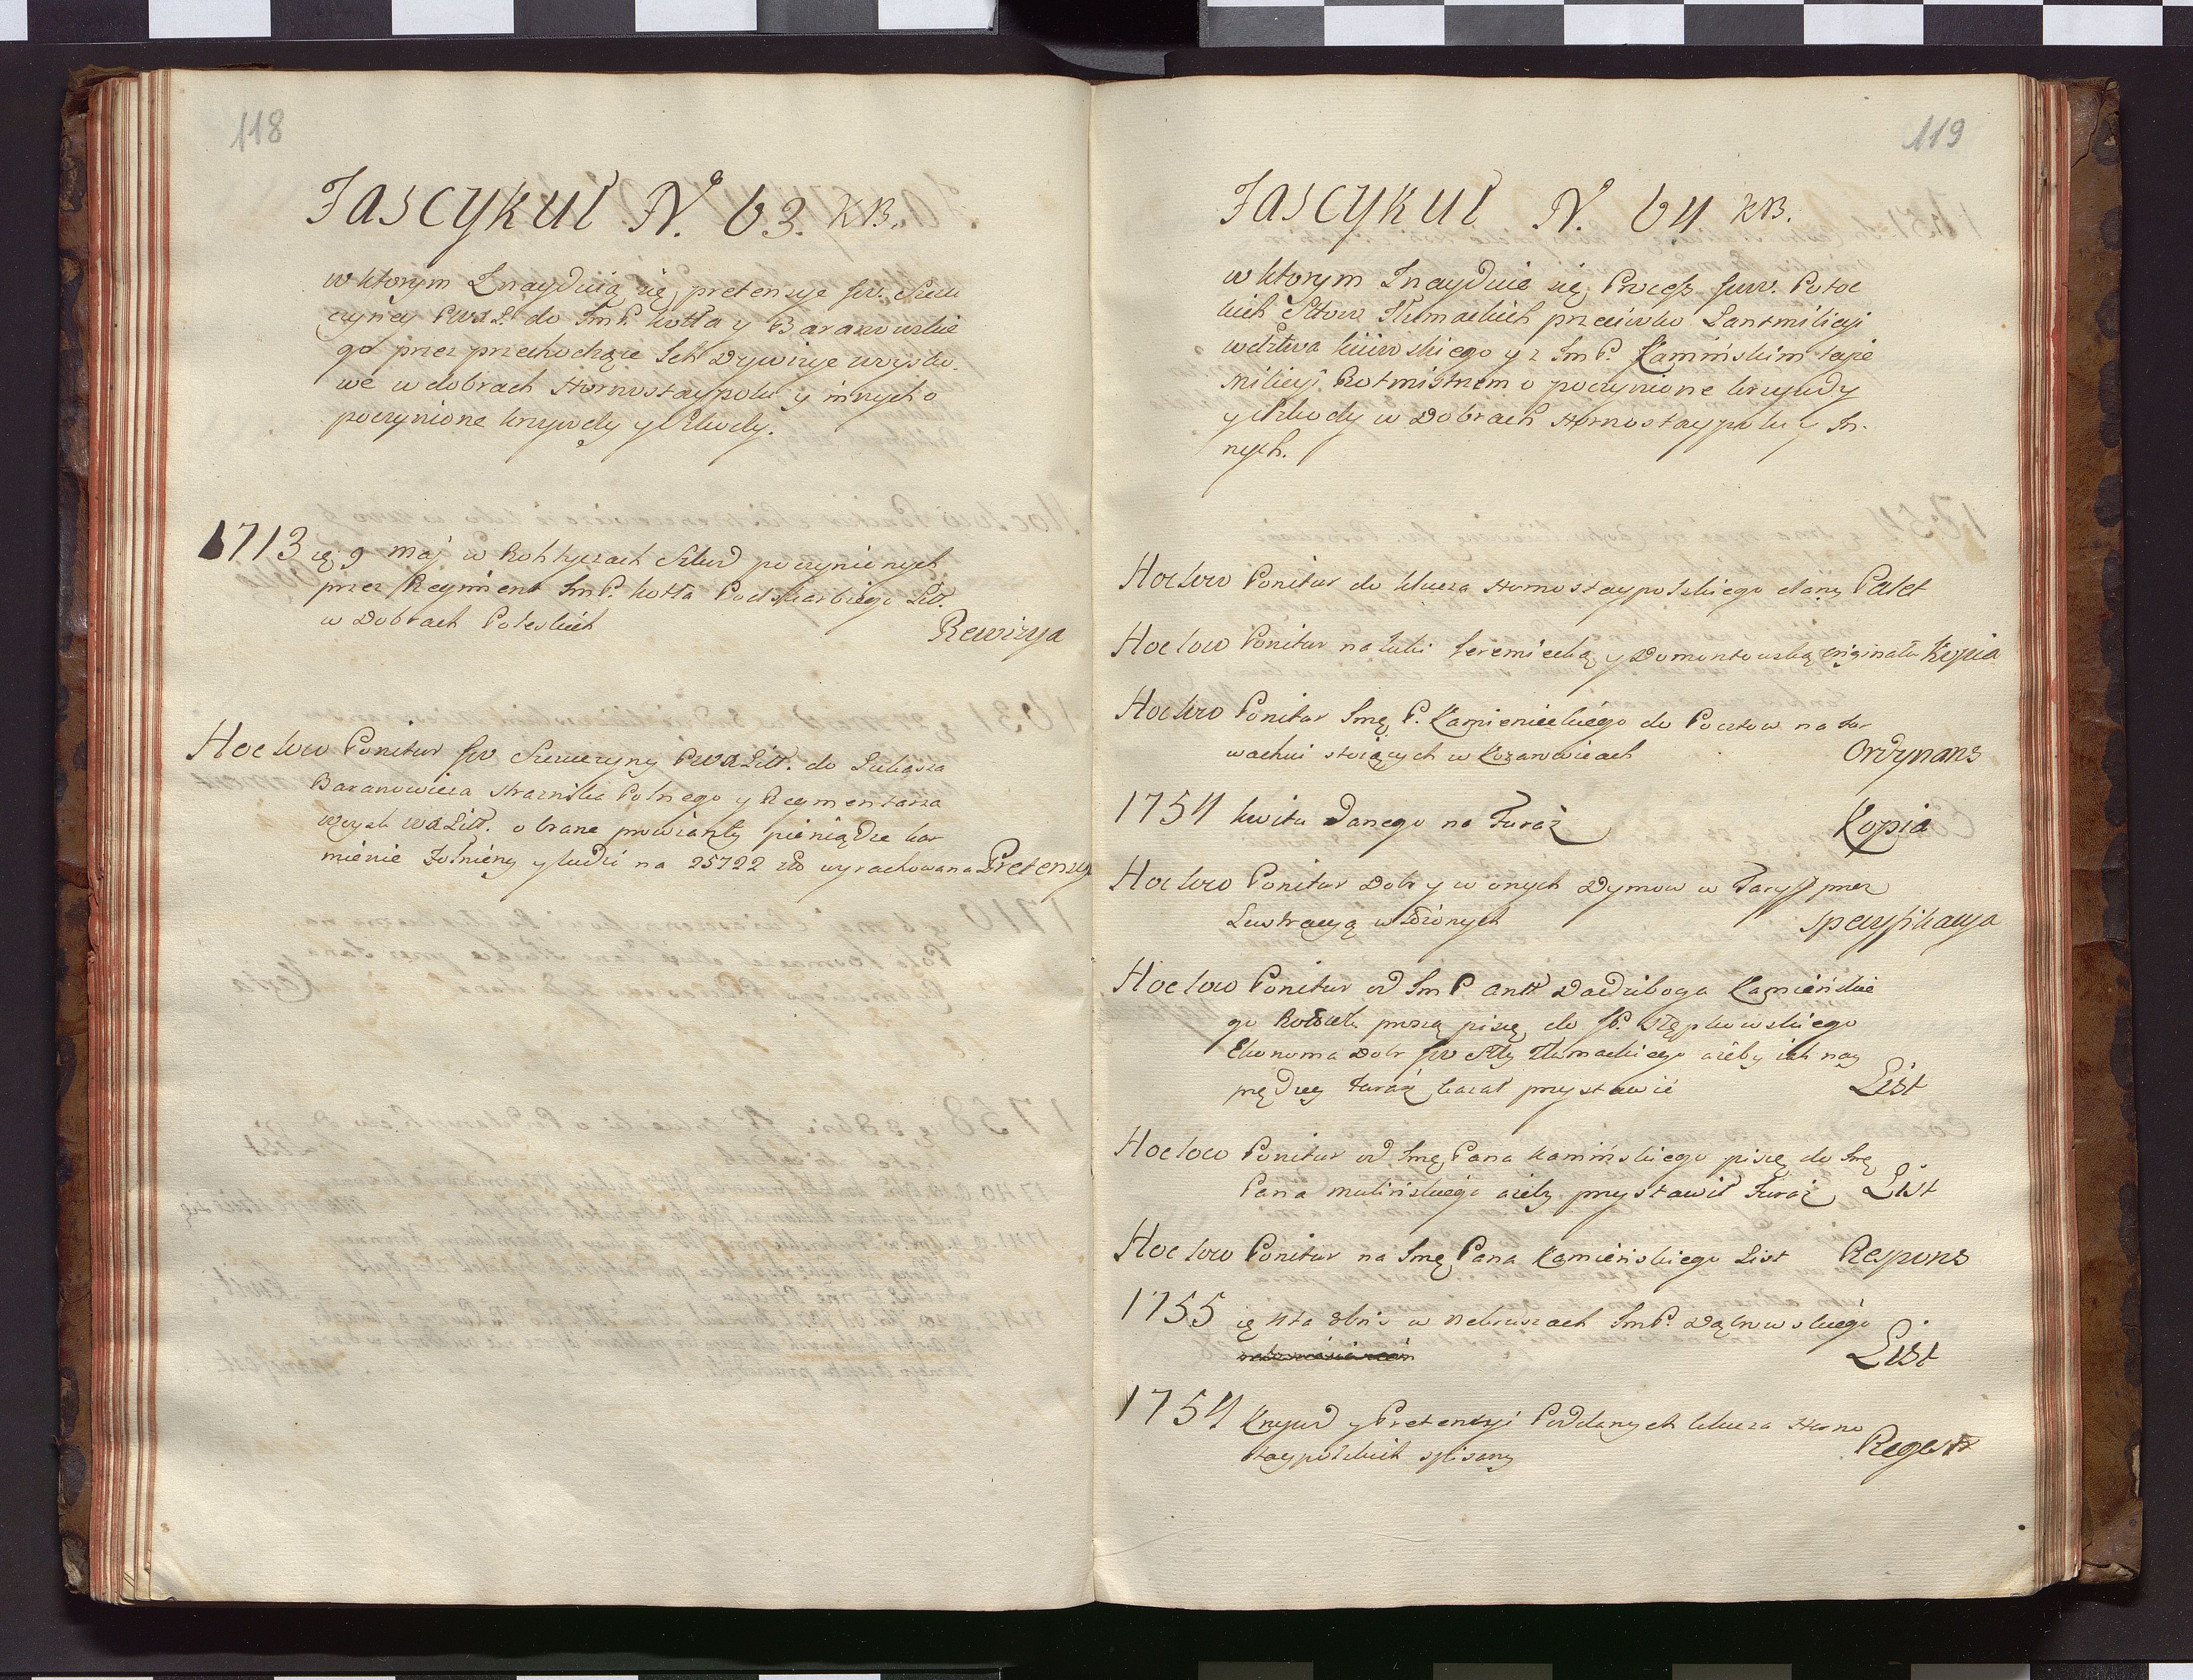 118
Fascykuł N. 63. KB.
w ktorym Znayduią się pretensye JW. Szeu
czyney PWXL. do ImP. Kotła y Baranowskie
go przez przechodzące Ich Dywizye woysko
we w dobrach Hornostaypolu y innych o
poczynione krzywdy y Szkody.
1713 ię 9 maj w Szkod poczynionych
przez Regiment ImP. Kotła Podskarbiego Litt.
w Dobrach Poleskich Rewizya
Hoc loco Ponitur JW PWXLitt. do Lukasza
Baranowicza Straznika Polnego y Regimentarza
Woysk WXLitt. o brane prowianty pieniądze kar
mienie Zołnierzy y ludzi na 25722 zło wyrachowana Pretensya
119
Fascykuł N. 64 KB.
w ktorym Znayduie się Process JWW. Potoc
kich Sttow Tłumackich przeciwko Lantmilicyi
wdztwa kiiowskiego y z ImP. Kamińskim teyże
Milicyi Rotmistrzem o poczynione krzywdy
y Szkody w Dobrach Hornostaypolu y In-
nych.
Hoc loco Ponitur do klucza Hornostaypolskiego dany Palet
Hoc loco Ponitur na łuki Jeremiecką y Domontowską originału Kopia
Hoc loco Ponitur Imę P. Kamienieckiego do Pocztow na
stoiących w Kozarowicach Ordynans
1754 kwitu Danego na Furaż Kopia
Hoc loco Ponitur Dobr y w onych Dymow w Taryff przez
Lustracyą włożonych Specyfikacya
Hoc loco Ponitur od ImP. Antt. Dadziboga Kamieńskie
go piszę do JP. Stępkowskiego
Ekonoma Dobr JW Stty Tłumackiego ażeby iak nay
prędzey Furaż kazał przystawić List
Hoc loco Ponitur od Imę Pana Kamińskiego piszę do Imę
Pana Malińskiego ażeby przystawił Furaż List
Hoc loco Ponitur na Imę Pana Kamieńskiego List Respons
1755 ię 4ta 8bris w ImP. Dąbrowskiego
List
1754 Krzywd y Pretensyi Poddanych klucza Horno
staypolskich spisany Regestr